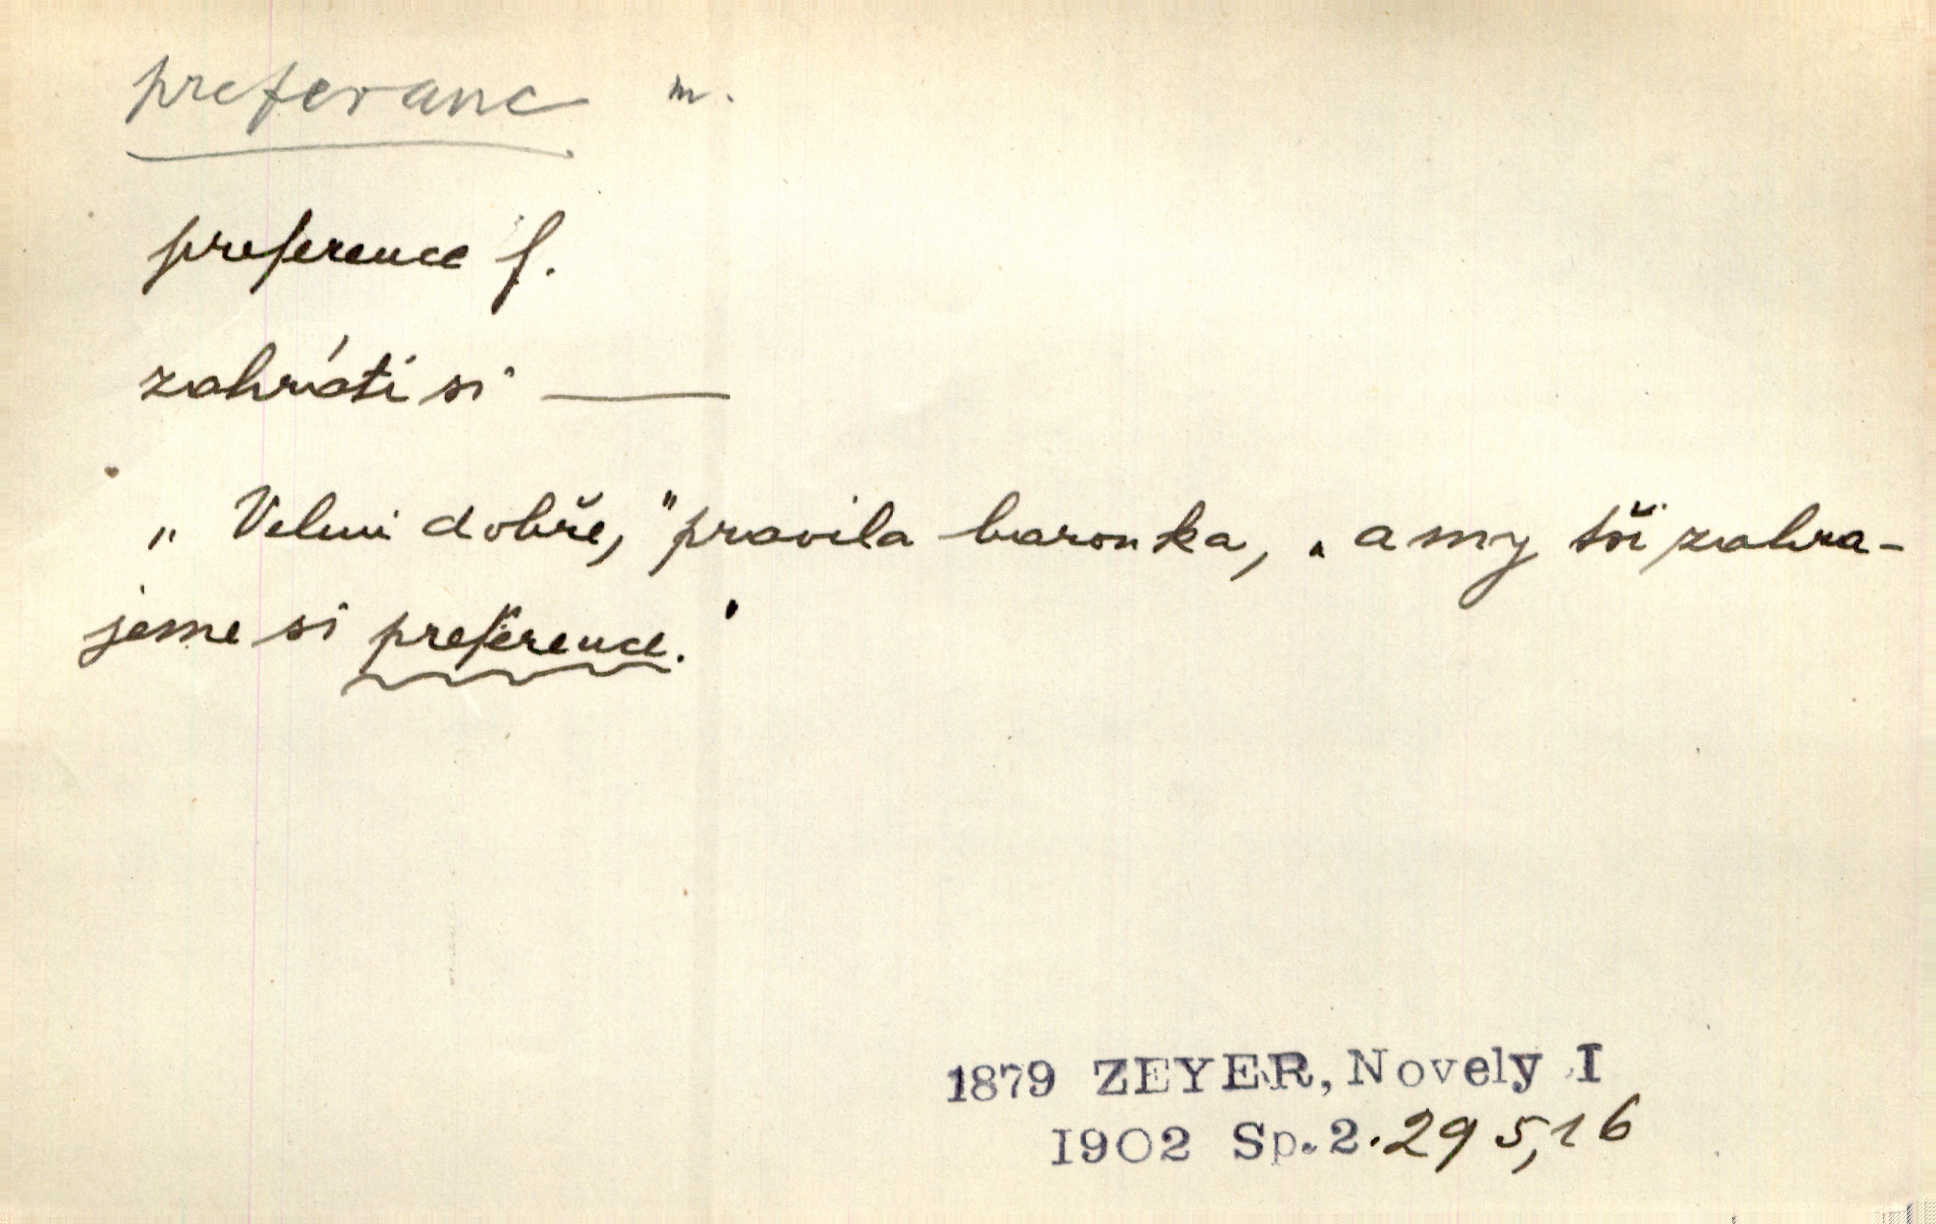 preferanc m.
preference f.
zahráti si ———
„ Velmi dobře,“ pravila baronka, „a my tři zahra-
jeme si preference.“
1879 ZEYER, Novely I
1902 Sp. 2. 295,16